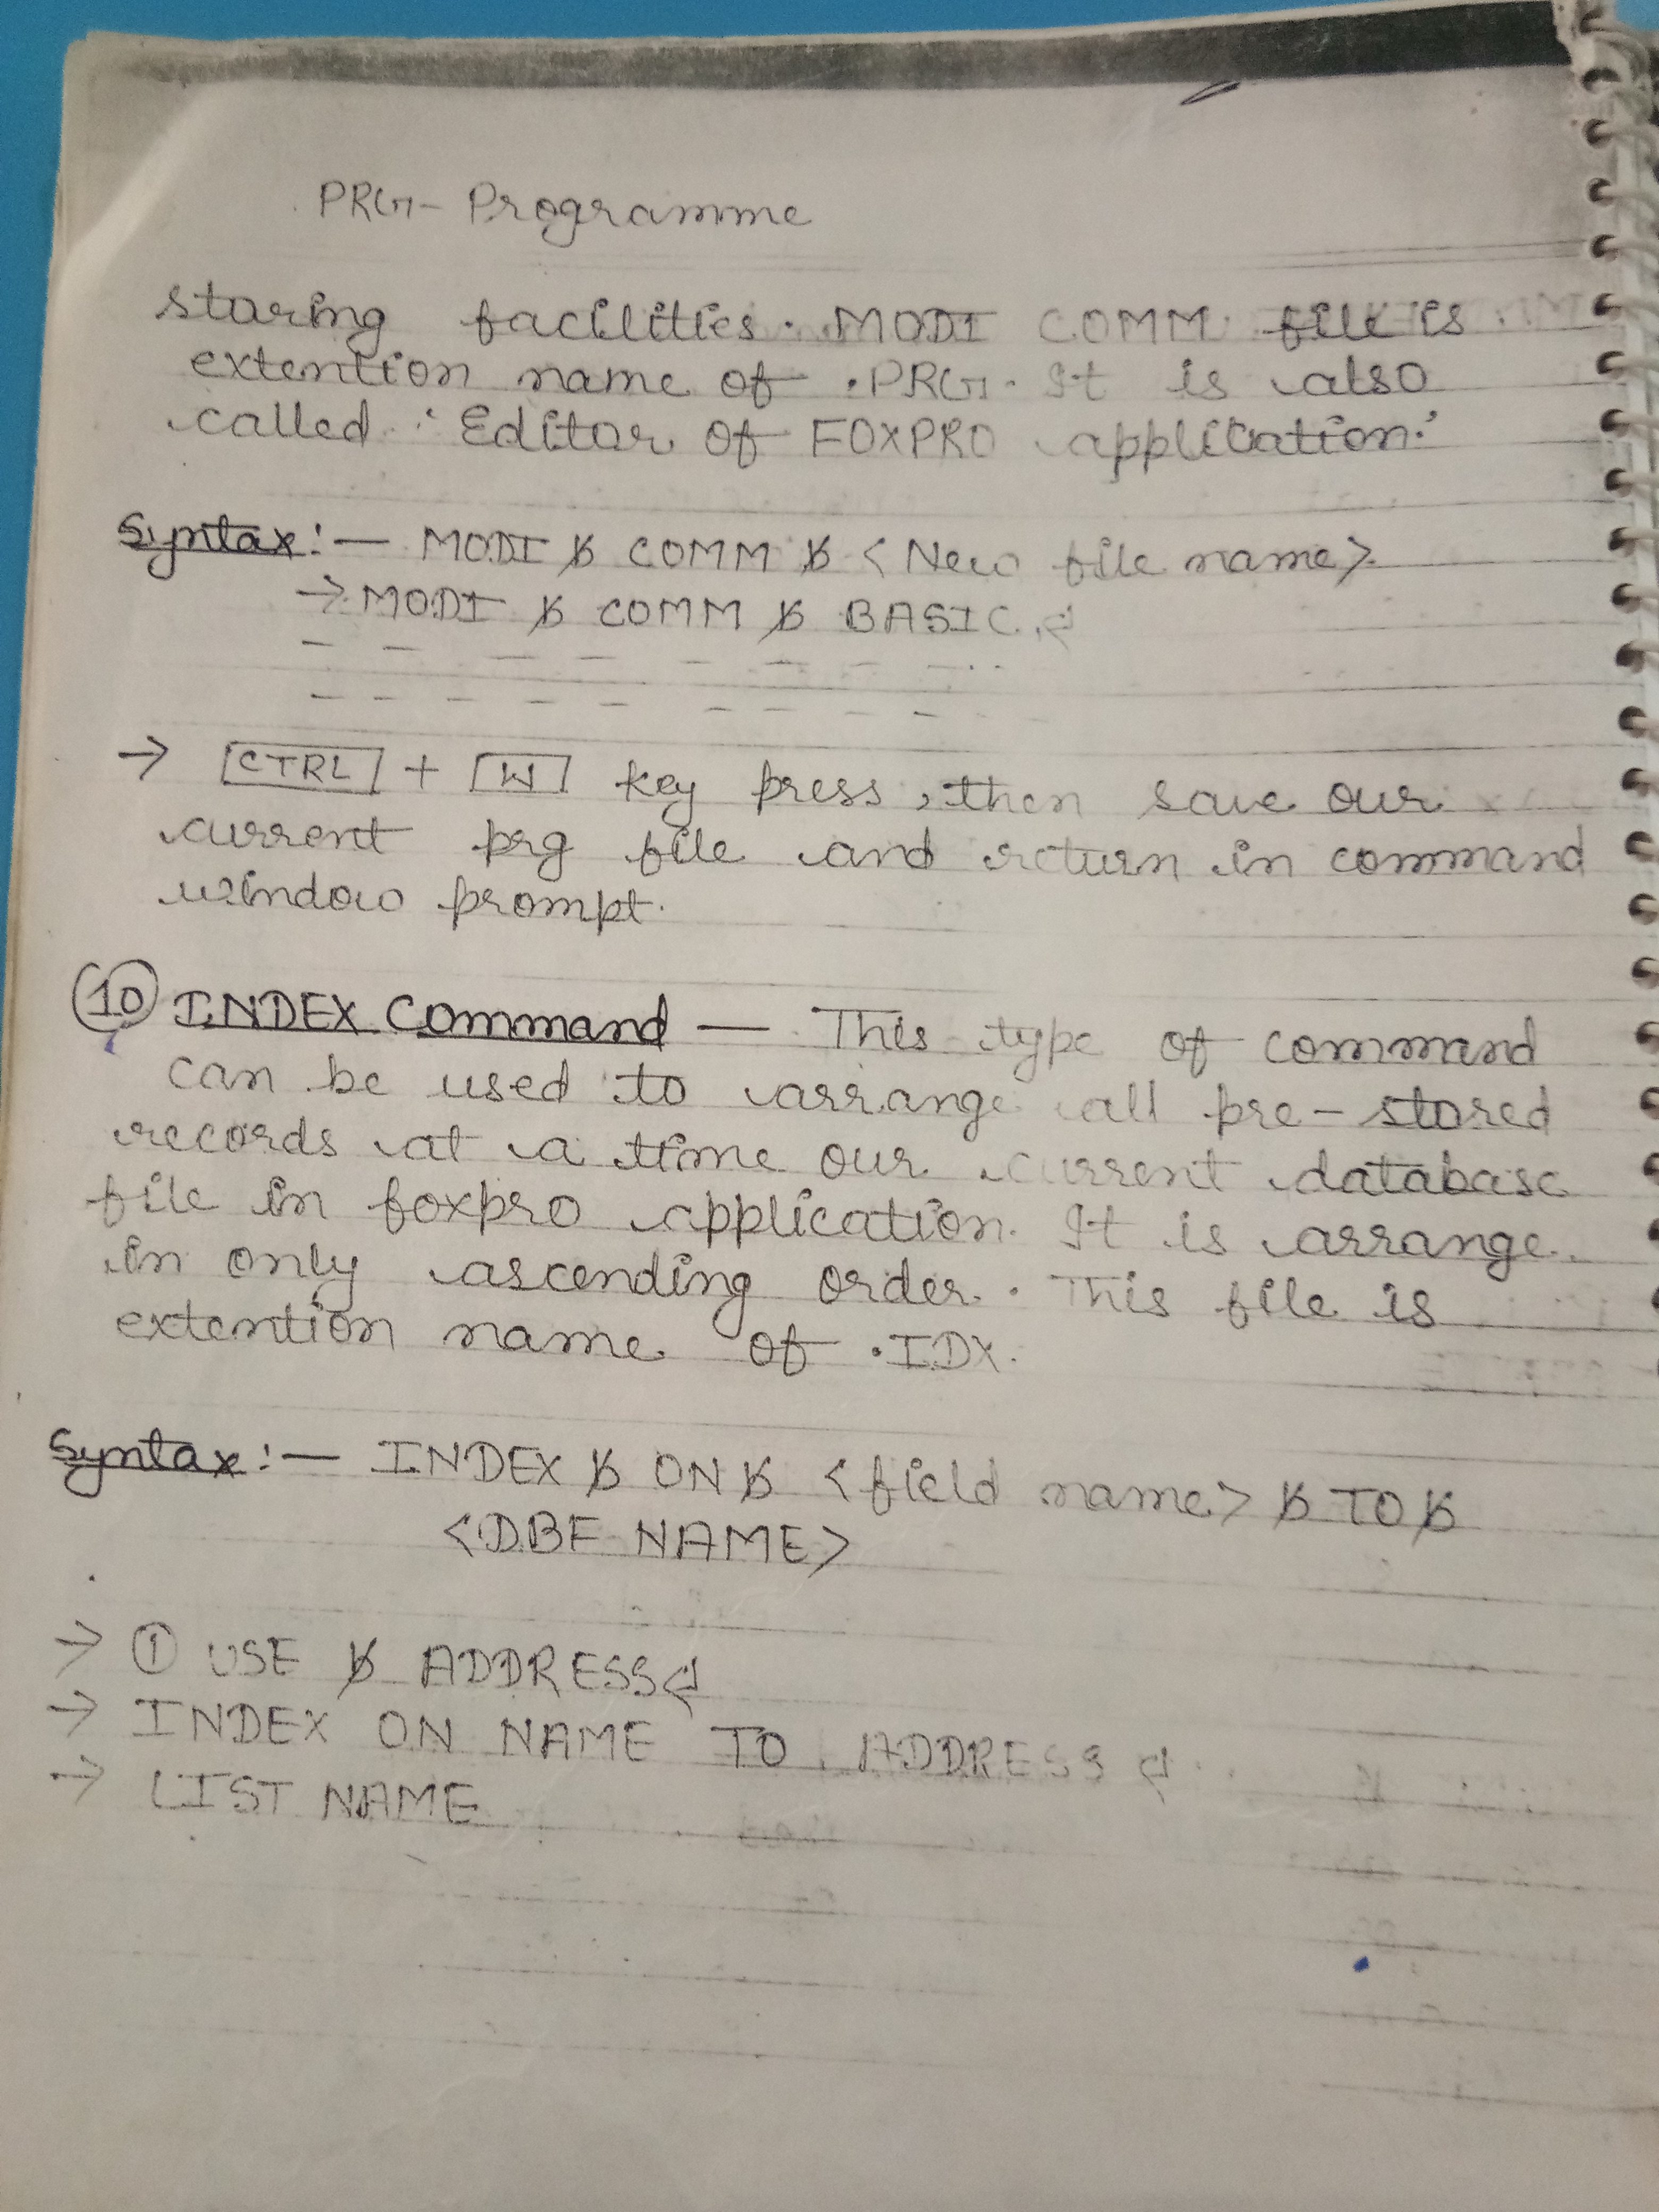 PRG - Programme
staring facilities. MODI COMM file is
extention name of .PRG. It is also
called 'Editor of FOXPRO application.'
Syntax:— MODI ␢ COMM ␢ <New file name>
→ MODI ␢ COMM ␢ BASIC ↵
→ [CTRL] + [W] key press, then save our
current prg file and return in command
window prompt.
(10) INDEX Command — This type of command
can be used to arrange all pre-stored
records at a time our current database
file in foxpro application. It is arrange
in only ascending order. This file is
extention name of .IDX.
Syntax:— INDEX ␢ ON ␢ <field name> ␢ TO ␢
<DBF NAME>
→ ① USE ␢ ADDRESS ↵
→ INDEX ON NAME TO ADDRESS ↵
→ LIST NAME